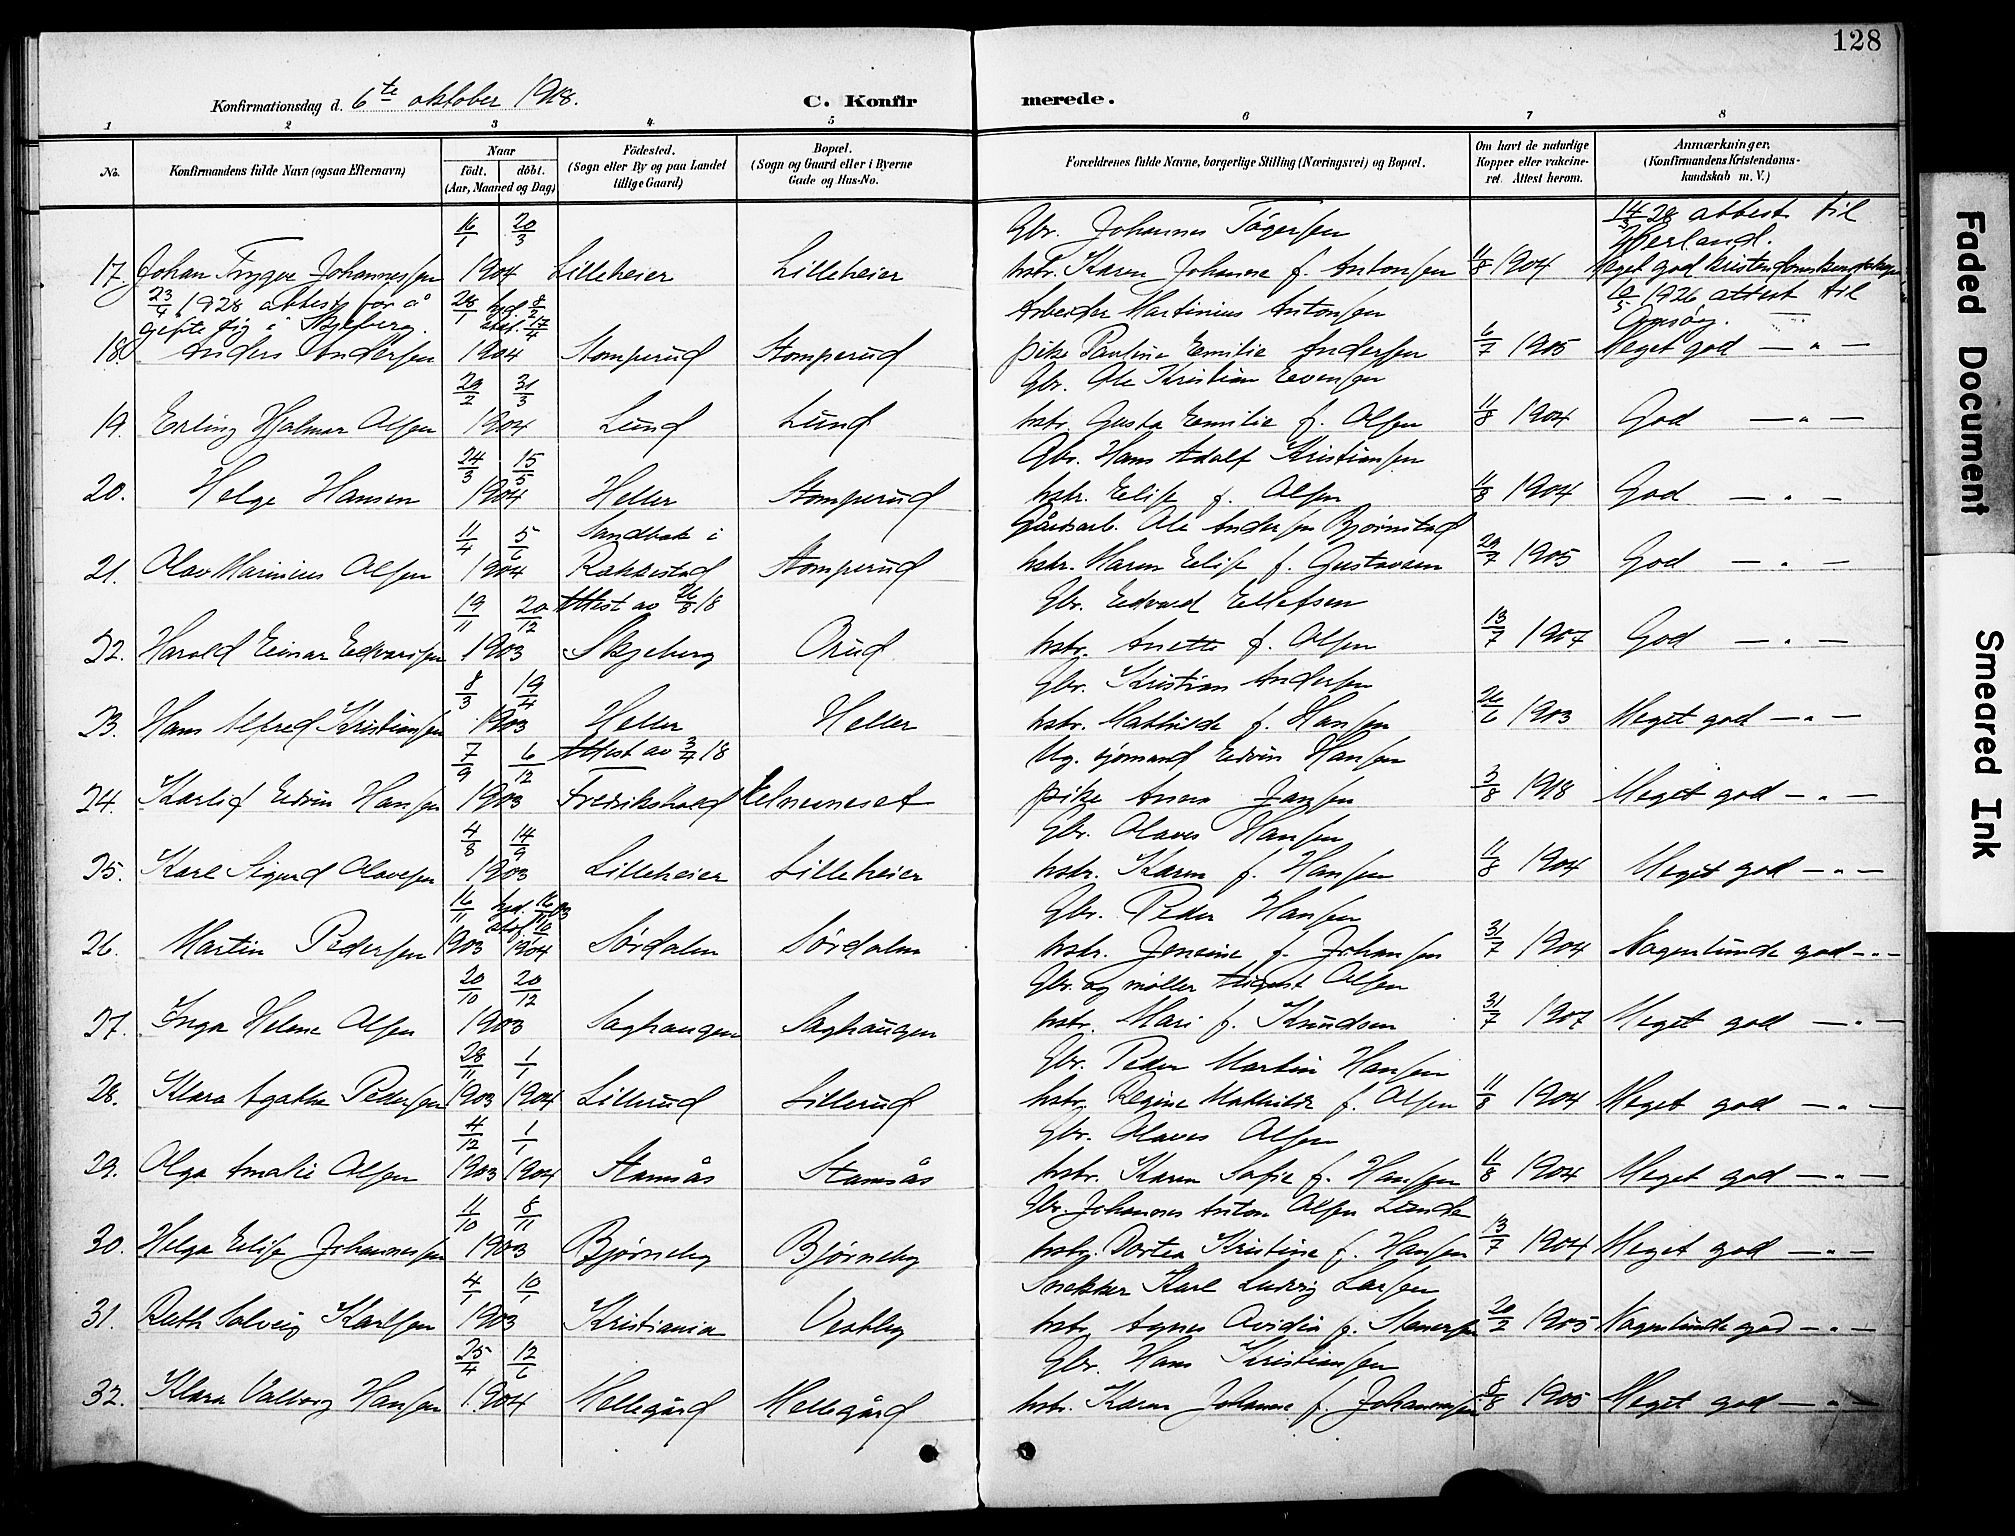 128
Konfirmationsdag d. 6te oktober 1918.
C. Konfirmerede.
1 2 3 4 5 6 7 8
No. Konfirmandens fulde Navn (ogsaa Efternavn) Naar født. døbt. (Aar, Maaned og Dag) Fødested. (Sogn eller By og paa Landet tillige Gaard) Bopæl. (Sogn og Gaard eller i Byerne Gade og Hus-No. Forældrenes fulde Navne, borgerlige Stilling (Næringsvei) og Bopæl. Om havt de naturlige Kopper eller vakcineret. Attest herom. Anmærkninger. (Konfirmandens Kristendomskundskab m. V.)
16/1 20/3 Gbr. Johannes Tøgersen 14/3 28 attest til
17. Johan Trygve Johannessen 1904 Lilleheier Lilleheier hstr. Karen Johanne f. Antonsen 11/8 1904 Meget god kristendomskundskap
23/4 1928 attest for å 28/1 hjd. 8/2 Arbeider Martinius Antonsen 10/5 1926 attest til
gifte sig i Skjeberg. stat. 17/4
18. Anders Andersen 1904 Stomperud Stomperud pike Pauline Emilie Andersen 6/7 1905 Meget god — " —
29/2 31/3 Gbr. Ole Kristian Evensen
19. Erling Hjalmar Olsen 1904 Lund Lund hstr. Gusta Emilie f. Olsen 11/8 1904 God — " —
24/3 15/5 Gbr. Hans Adolf Kristiansen
20. Helge Hansen 1904 Heller Stomperud hstr. Elise f. Olsen 11/8 1904 God — " —
11/4 5/6 Sandbak i Gårdsarb. Ole Andersen Bjørnstad
21. Olav Marinius Olsen 1904 Rakkestad Stomperud hstr. Maren Elise f. Gustavsen 29/7 1905 God — " —
19/11 20/12 Attest av 26/8 18 Gbr. Edvard Ellefsen
22. Harald Einar Edvardsen 1903 Skjeberg Orud hstr. Anette f. Olsen 13/7 1907 God — " —
8/3 19/4 Gbr. Kristian Andersen
23. Hans Alfred Kristiansen 1903 Heller Heller hstr. Mathilde f. Hansen 26/6 1903 Meget god — " —
7/9 6/12 Attest av 3/4 18 Ug. sjømand Edvin Hansen
24. Karlid Edvin Hansen 1903 Fredrikshald pike Anna Jansen 3/8 1918 Meget god — " —
4/8 14/9 Gbr. Olaves Hansen
25. Karl Sigurd Olavesen 1903 Lilleheier Lilleheier hstr. Karen f. Hansen 11/8 1904 Meget god — " —
16/11 hjd. 16/11 03 Gbr. Peder Hansen
26. Martin Pedersen 1903 1904 Sørdalen Sørdalen hstr. Jensine f. Johansen 31/7 1904 Nogenlunde god — " —
20/10 20/12 Gbr. og møller August Olsen
27. Inga Helene Olsen 1903 Saghaugen Saghaugen hstr. Mari f. Knudsen 31/7 1907 Meget god — " —
28/11 1/1 Gbr. Peder Martin Hansen
28. Klara Agathe Pedersen 1903 1904 Lillerud Lillerud hstr. Regine Mathilde f. Olsen 11/8 1904 Meget god — " —
4/12 1/1 Gbr. Olaves Olsen
29. Olga Amalie Olsen 1903 1904 Stamsås Stamsås hstr. Karen Sofie f. Hansen 11/8 1904 Meget god — " —
11/10 8/11 Gbr. Johannes Anton Olsen Lunde
30. Helga Elise Johannessen 1903 Bjørneby Bjørneby hstr. Dortea Kristine f. Hansen 13/7 1904 Meget god — " —
4/1 10/1 Snekker Karl Ludvig Larsen
31. Ruth Solveig Karlsen 1903 Kristiania Vestby hstr. Agnes Ovidia f. Stenersen 20/2 1905 Nogenlunde god — " —
25/4 12/6 Gbr. Hans Kristiansen
32. Klara Valborg Hansen 1904 Hellegård Hellegård hstr. Karen Johanne f. Johannessen 8/8 1905 Meget god — " —
Faded Document
Smeared Ink